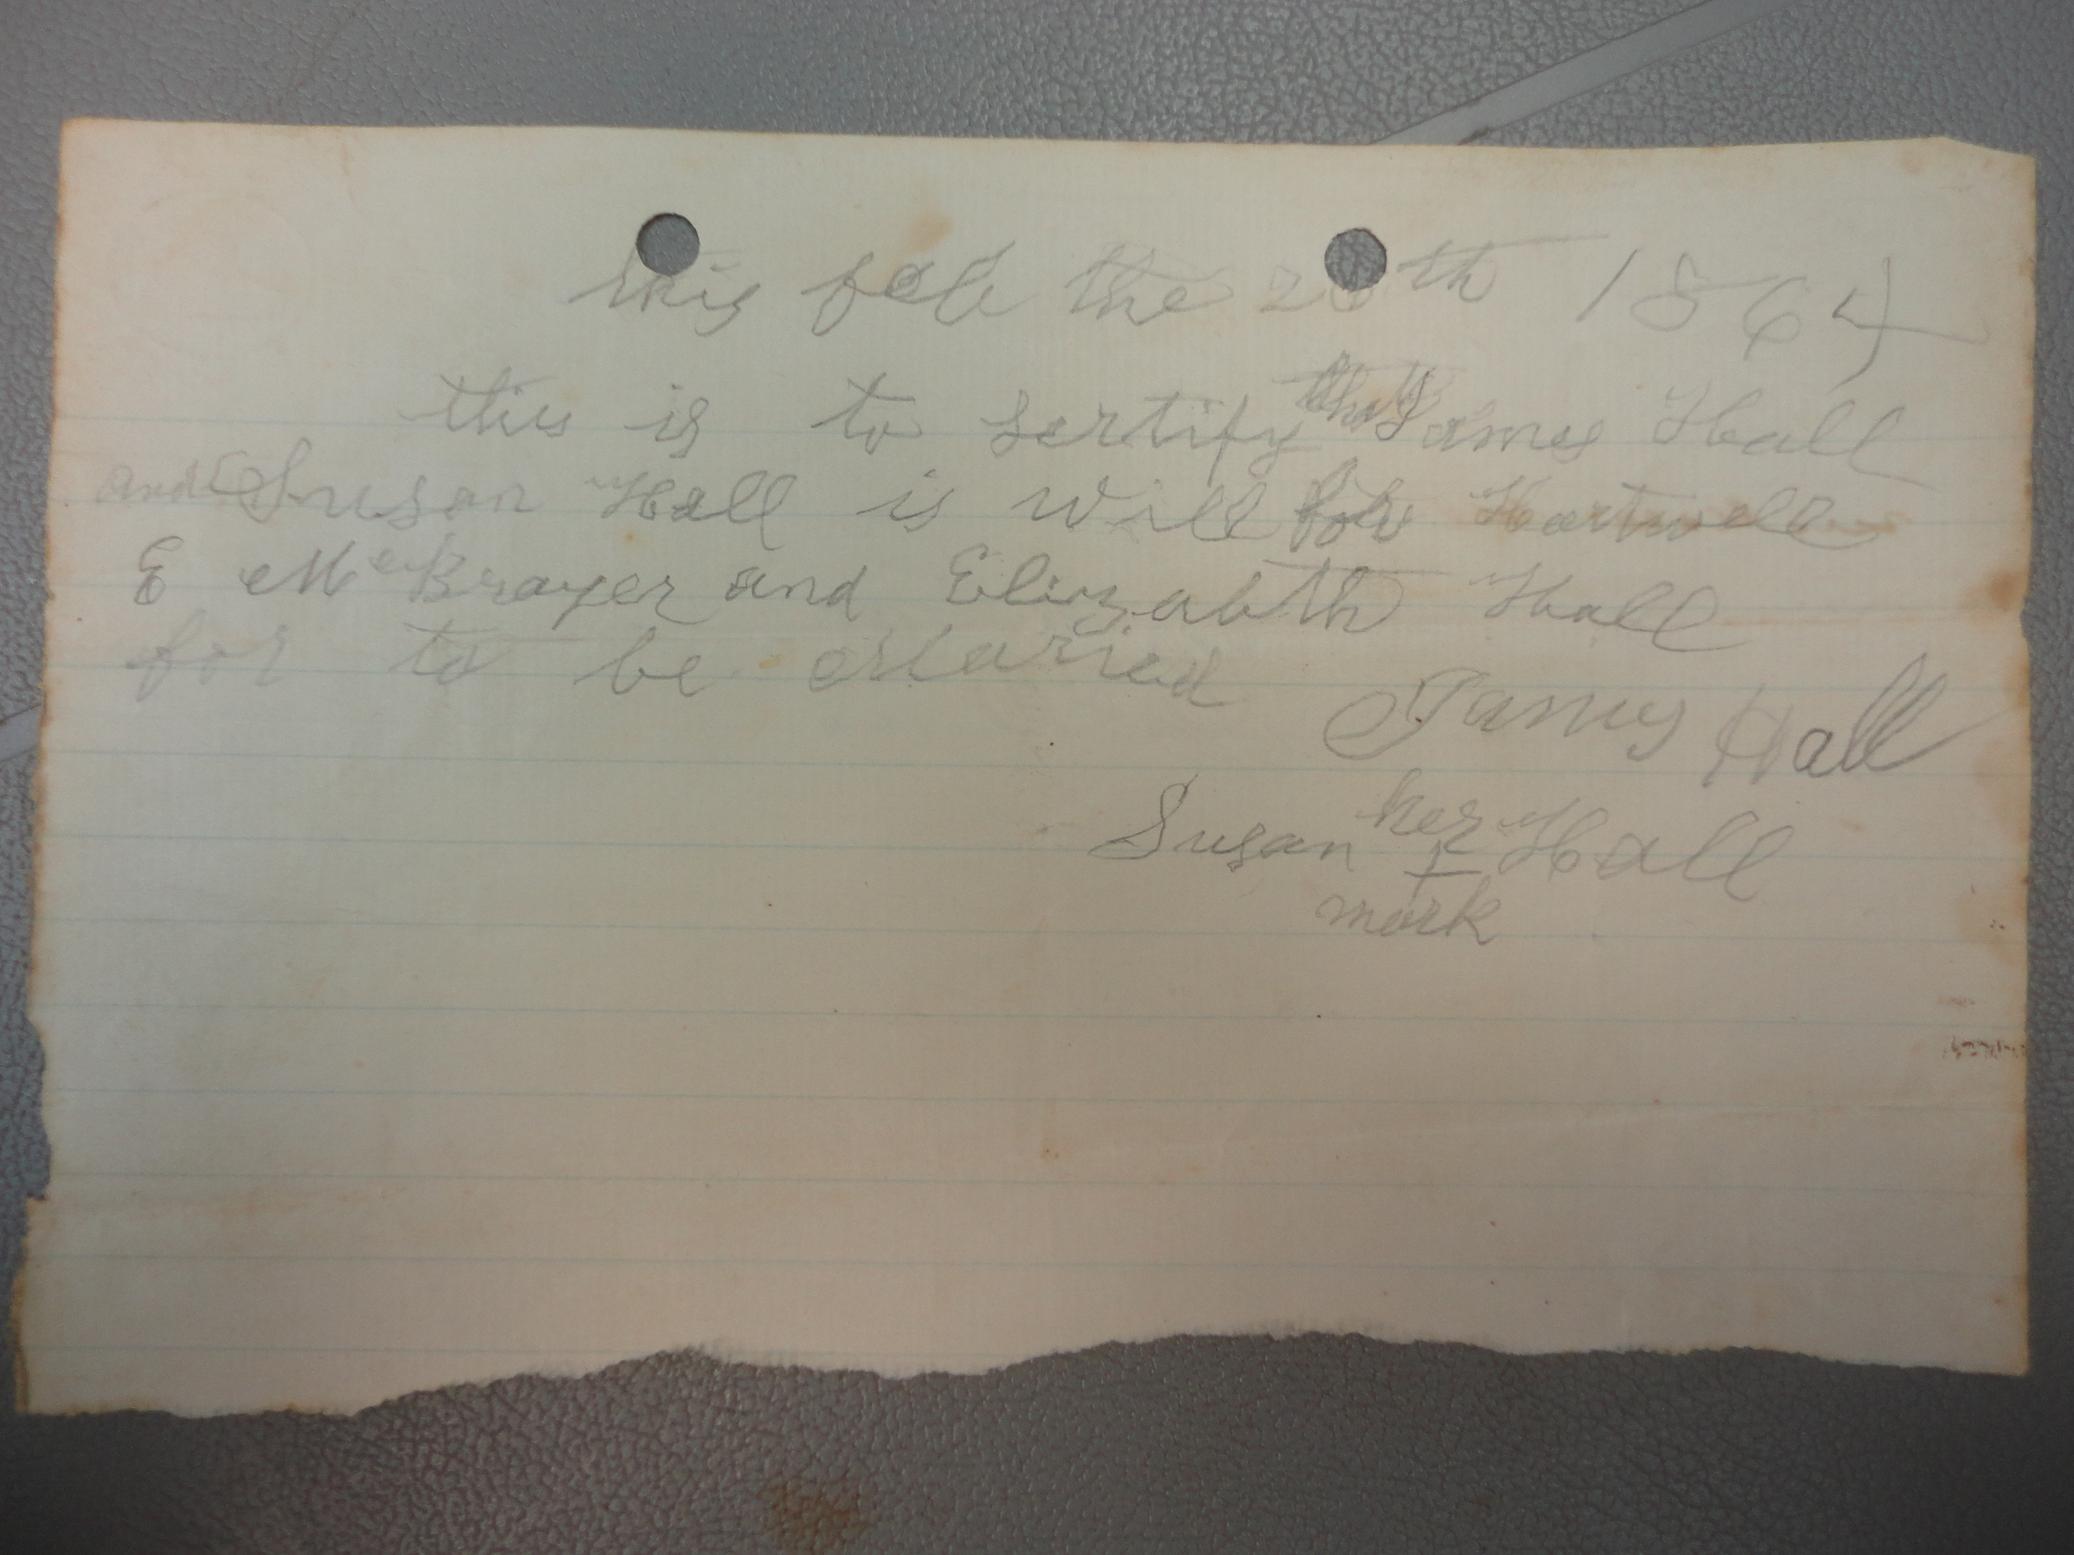 this feb the th 1864
this is to sertify that James Hall
and Susan Hall is will for Hartwell
E McBrayer and Elizabeth Hall
for to be Maried
James Hall
her
Susan + Hall
mark